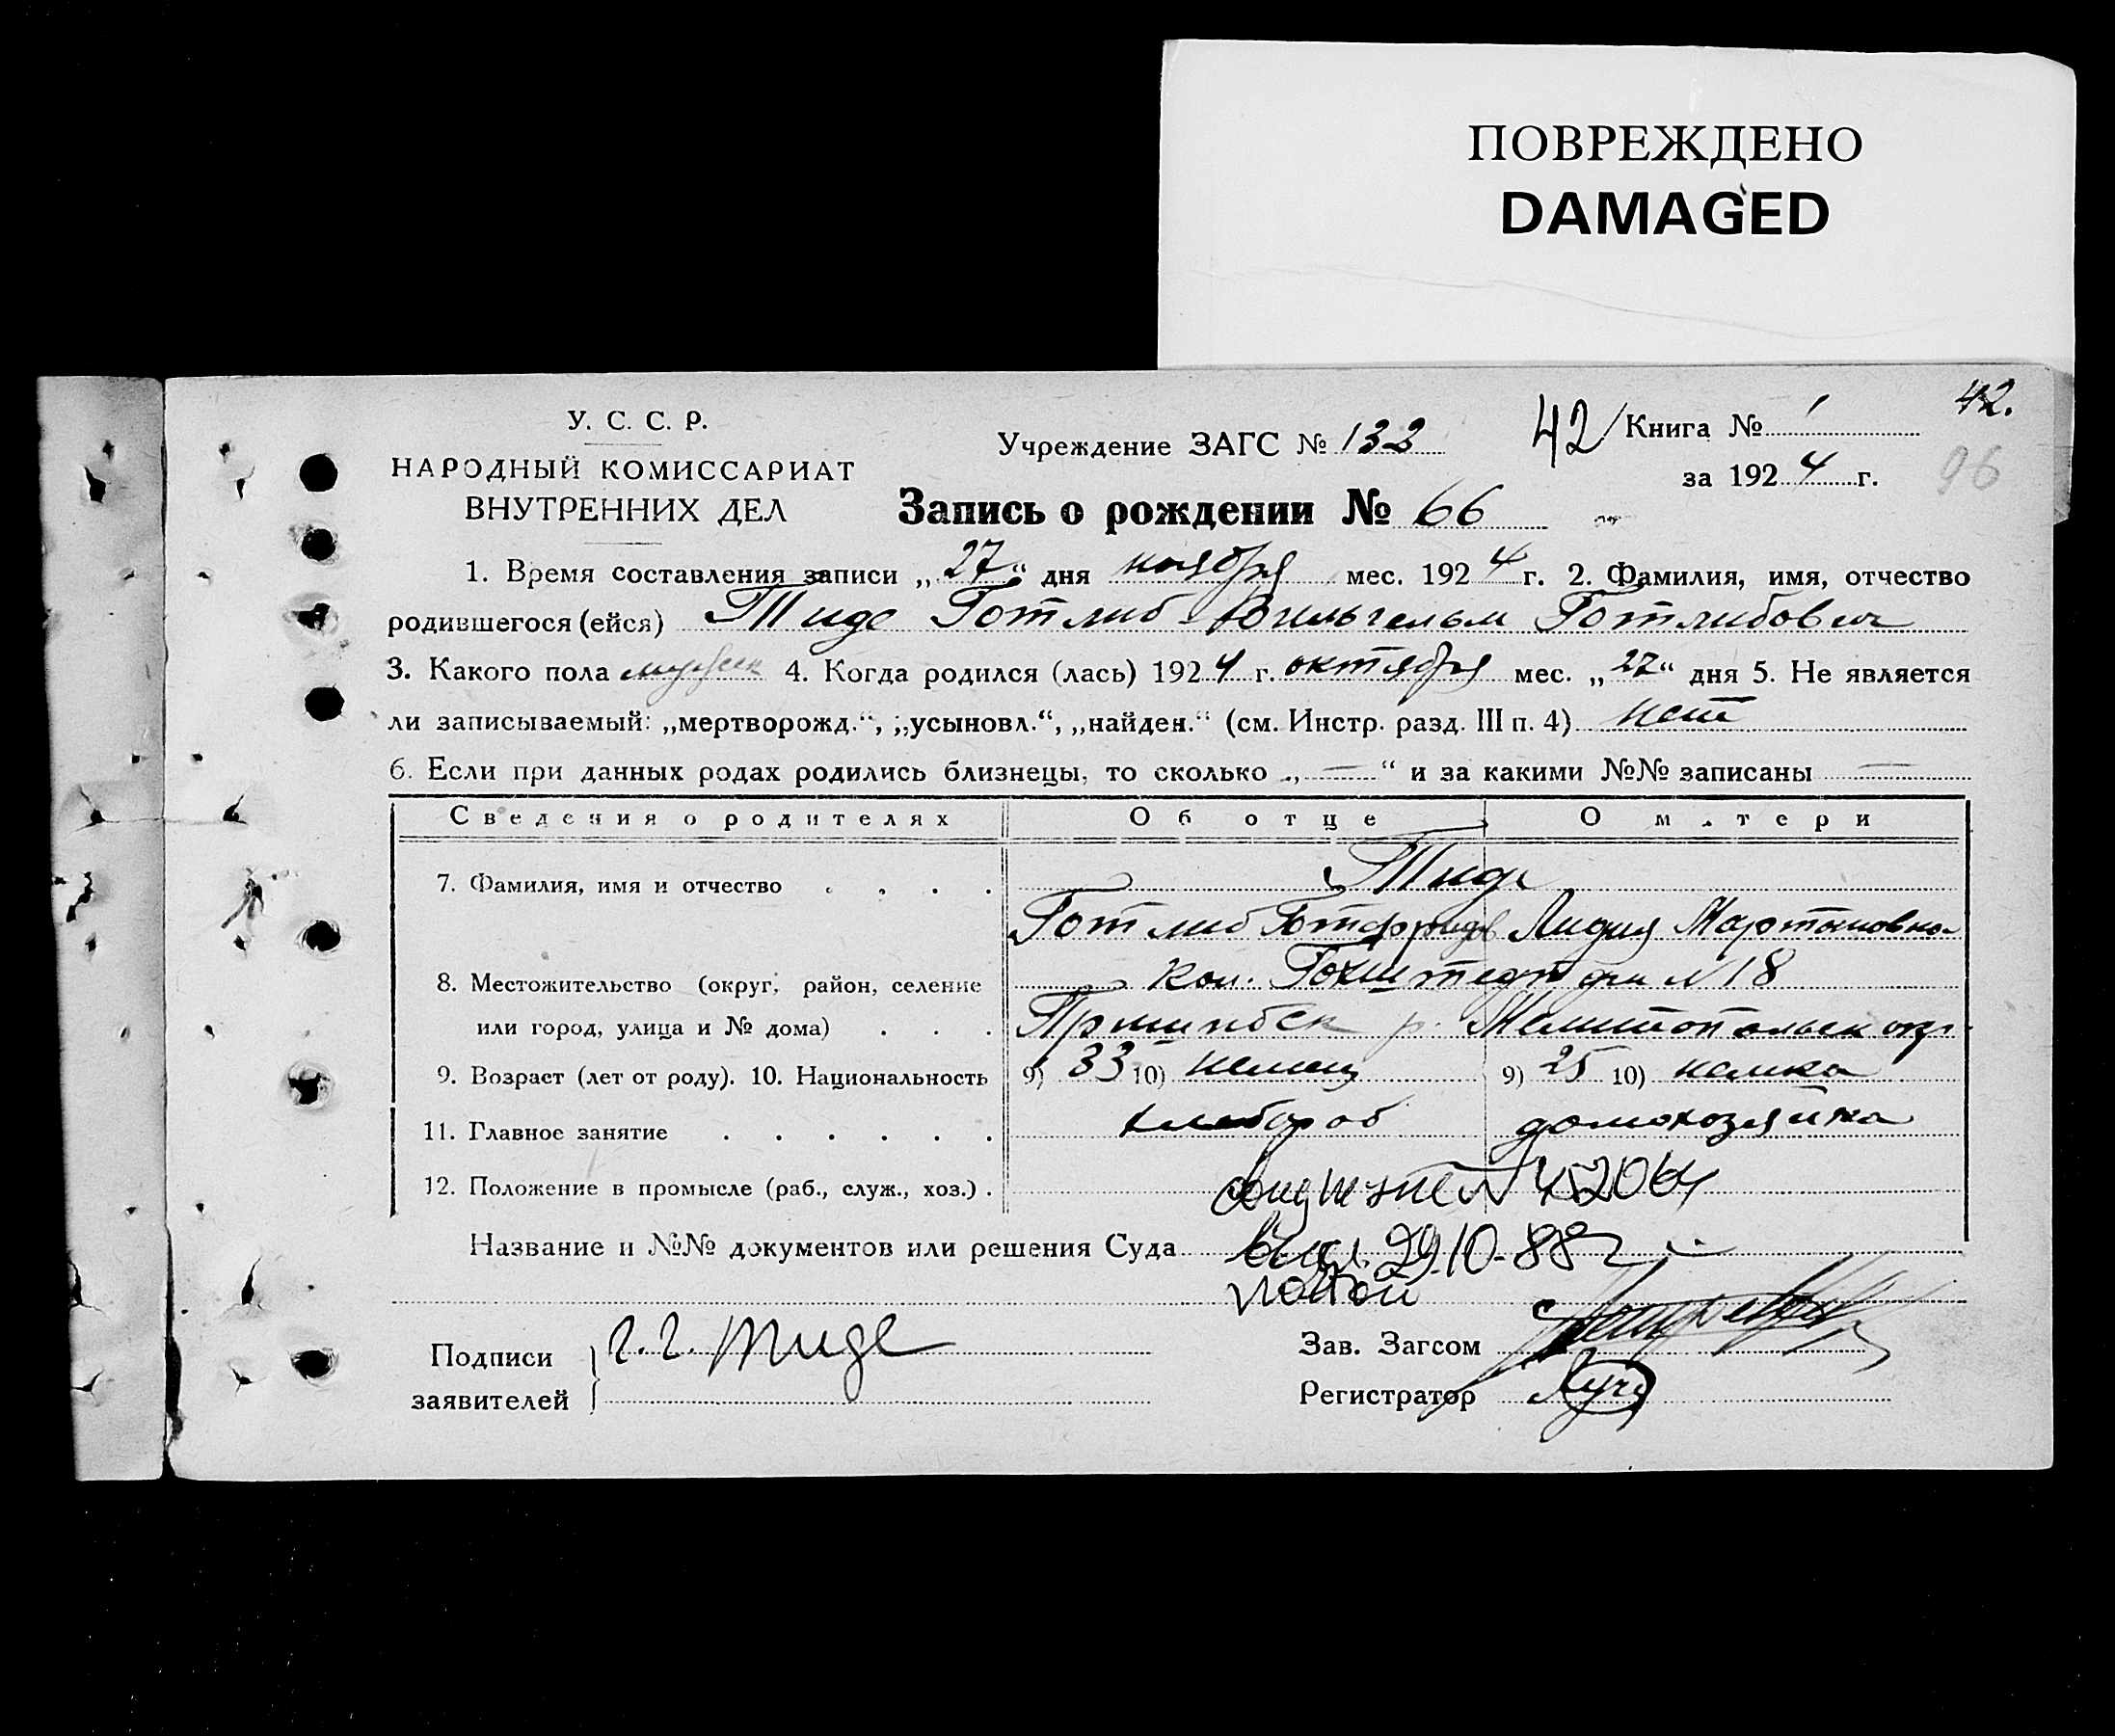 ПОВРЕЖДЕНО
DAMAGED
42.
У. С. С. Р.
НАРОДНЫЙ КОМИССАРИАТ
ВНУТРЕННИХ ДЕЛ
Учреждение ЗАГС № 132
42 Книга № 1
за 1924 г.
96
Запись о рождении № 66
1. Время составления записи „27“ дня ноября мес. 1924 г. 2. Фамилия, имя, отчество
родившегося (ейся) Тиде Готлиб-Вильгельм Готлибович
3. Какого пола мужск 4. Когда родился (лась) 1924 г. октября мес. „27“ дня 5. Не является
ли записываемый: „мертворожд.“, „усыновл.“, „найден.“ (см. Инстр. разд. III п. 4) нет
6. Если при данных родах родились близнецы, то сколько „—“ и за какими №№ записаны —
Сведения о родителях Об отце О матери
7. Фамилия, имя и отчество Тиде
Готлиб Готфридов Лидия Мартиновна
8. Местожительство (округ, район, селение Кол. Гохштедт дом №18
или город, улица и № дома) Пришибск р. Мелитопольск окр.
9. Возраст (лет от роду). 10. Национальность 9) 33 10) немец 9) 25 10) немка
11. Главное занятие хлебороб домохозяйка
12. Положение в промысле (раб., служ., хоз.) № 452064
Название и №№ документов или решения Суда 29.10.88г
почтой
Подписи заявителей Г. Г. Тиде
Зав. Загсом
Регистратор